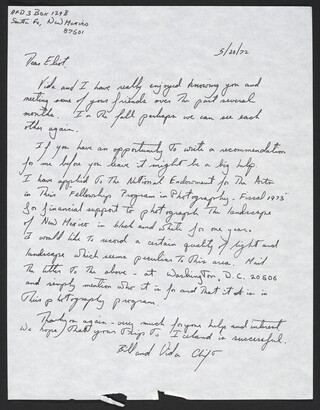 RFD 3 Box 129B
Santa Fe, New Mexico
87501
5/20/72
Dear Eliot,
Vida and I have really enjoyed knowing you and
meeting some of your friends over the past several
months. In the fall perhaps we can see each
other again.
If you have an opportunity to write a recommendation
for me before you leave it might be a big help.
I have applied to The National Endowment for The Arts
in Their Fellowship Program in Photography - Fiscal 1973
for financial support to photograph The landscape
of New Mexico in black and white for one year.
I would like to record a certain quality of light and
landscape which seems peculiar to This area. Mail
the letter to the above - at Washington, D.C. 20506
and simply mention who it is for and that it is in
This photography program.
Thank you again - very much for your help and interest.
We hope that your trip to Iceland is successful.
Bill and Vida Clift